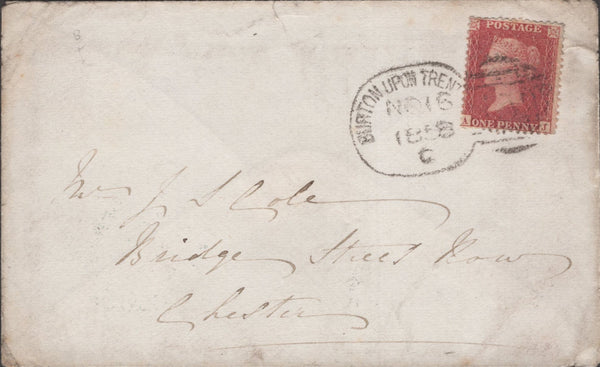 POSTAGE
A ONE PENNY J
BURTON UPON TRENT
NO 16
1858
C
Mr J S Cole
Bridge Street Row
Chester